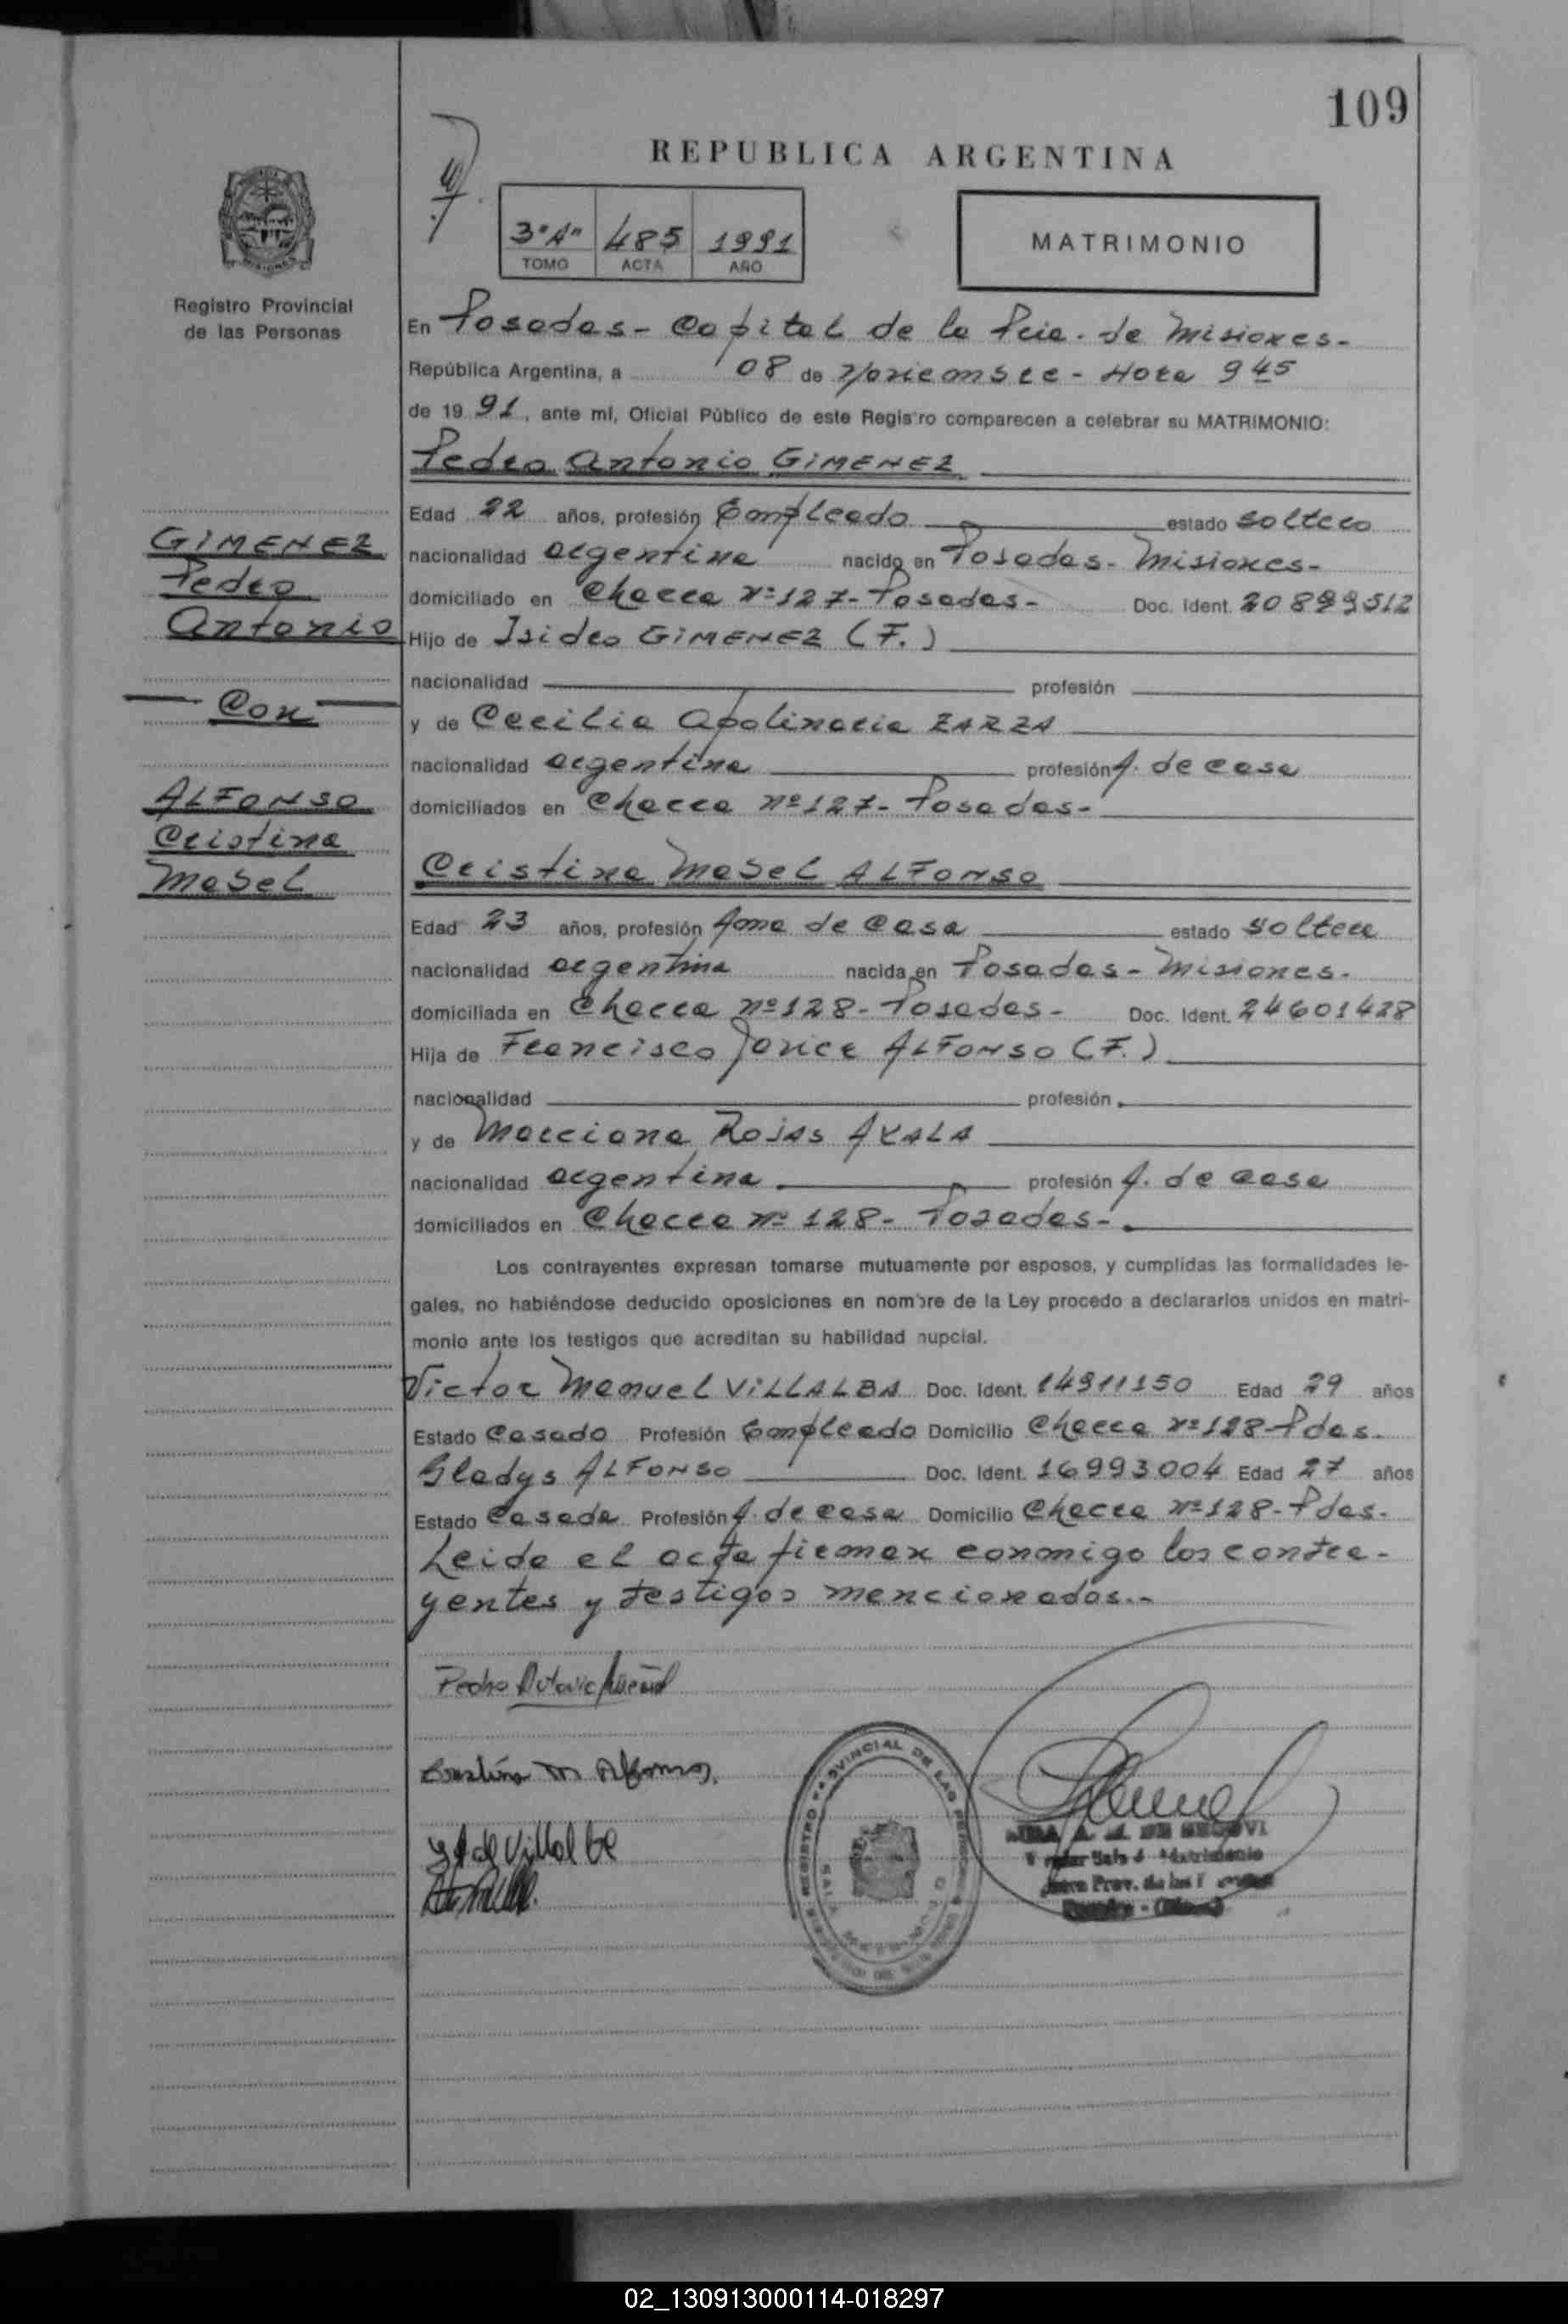 109
REPUBLICA ARGENTINA
3º"A" 485 1991
TOMO ACTA AÑO
MATRIMONIO
MISIONES
Registro Provincial
de las Personas
En Posadas - Capital de la Pcia. de Misiones -
República Argentina, a 08 de Noviembre - Hora 9 45
de 19 91, ante mí, Oficial Público de este Registro comparecen a celebrar su MATRIMONIO:
Pedro Antonio GIMENEZ
Edad 22 años, profesión Empleado estado soltero
GIMENEZ
Pedro
Antonio
nacionalidad argentina nacido en Posadas - Misiones -
domiciliado en Chacra Nº 127 - Posadas - Doc. Ident. 20899512
Hijo de Isidro GIMENEZ (F.)
nacionalidad profesión
Con
y de Cecilia Apolinaria ZARZA
nacionalidad argentina profesión A. de casa
domiciliados en Chacra Nº 127 - Posadas -
ALFONSO
Cristina
Mabel
Cristina Mabel ALFONSO
Edad 23 años, profesión Ama de Casa estado soltera
nacionalidad argentina nacida en Posadas - Misiones -
domiciliada en Chacra Nº 128 - Posadas - Doc. Ident. 24601428
Hija de Francisco Javier ALFONSO (F.)
nacionalidad profesión
y de Marciana Rojas AYALA
nacionalidad argentina profesión A. de casa
domiciliados en Chacra Nº 128 - Posadas -
Los contrayentes expresan tomarse mutuamente por esposos, y cumplidas las formalidades le-
gales, no habiéndose deducido oposiciones en nombre de la Ley procedo a declararlos unidos en matri-
monio ante los testigos que acreditan su habilidad nupcial.
Victor Manuel VILLALBA Doc. Ident. 14911150 Edad 29 años
Estado Casado Profesión Empleado Domicilio Chacra Nº 128 - Pdas.
Gladys ALFONSO Doc. Ident. 16993004 Edad 27 años
Estado Casada Profesión A. de casa Domicilio Chacra Nº 128 - Pdas.
Leida el acta firman conmigo los contra-
yentes y testigos mencionados.-
Pedro Antonio
Cristina M Alfonso
de Villalba
REGISTRO PROVINCIAL DE LAS PERSONAS
02_130913000114-018297